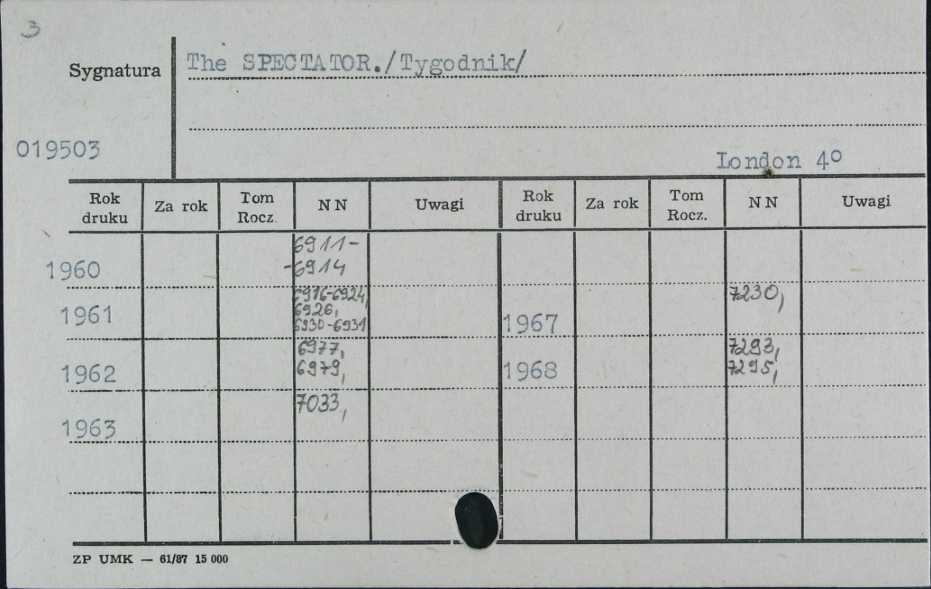 3
Sygnatura
The SPECTATOR./Tygodnik/
019503
London 4o
Rok druku Za rok Tom Rocz. NN Uwagi Rok druku Za rok Tom Rocz. NN Uwagi
1960 6911-
-6914
1961 6916-6924,
6926,
6930-6931
1967 7230,
1962 6977,
6979,
1968 7293,
7295,
1963 7033,
ZP UMK — 61/87 15 000